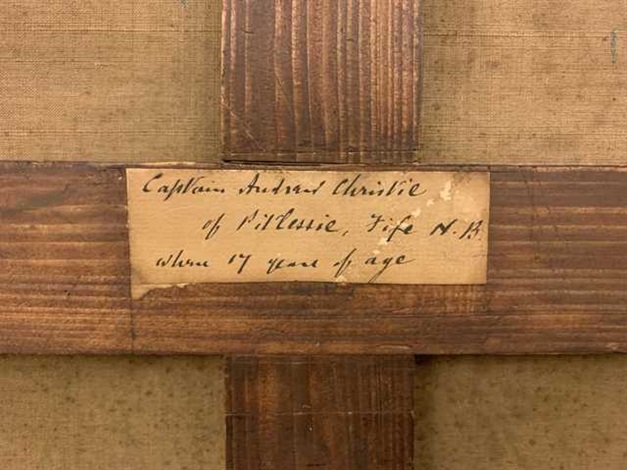 Captain Andrew Christie
of Pitlessie, Fife N.B.
when 17 years of age